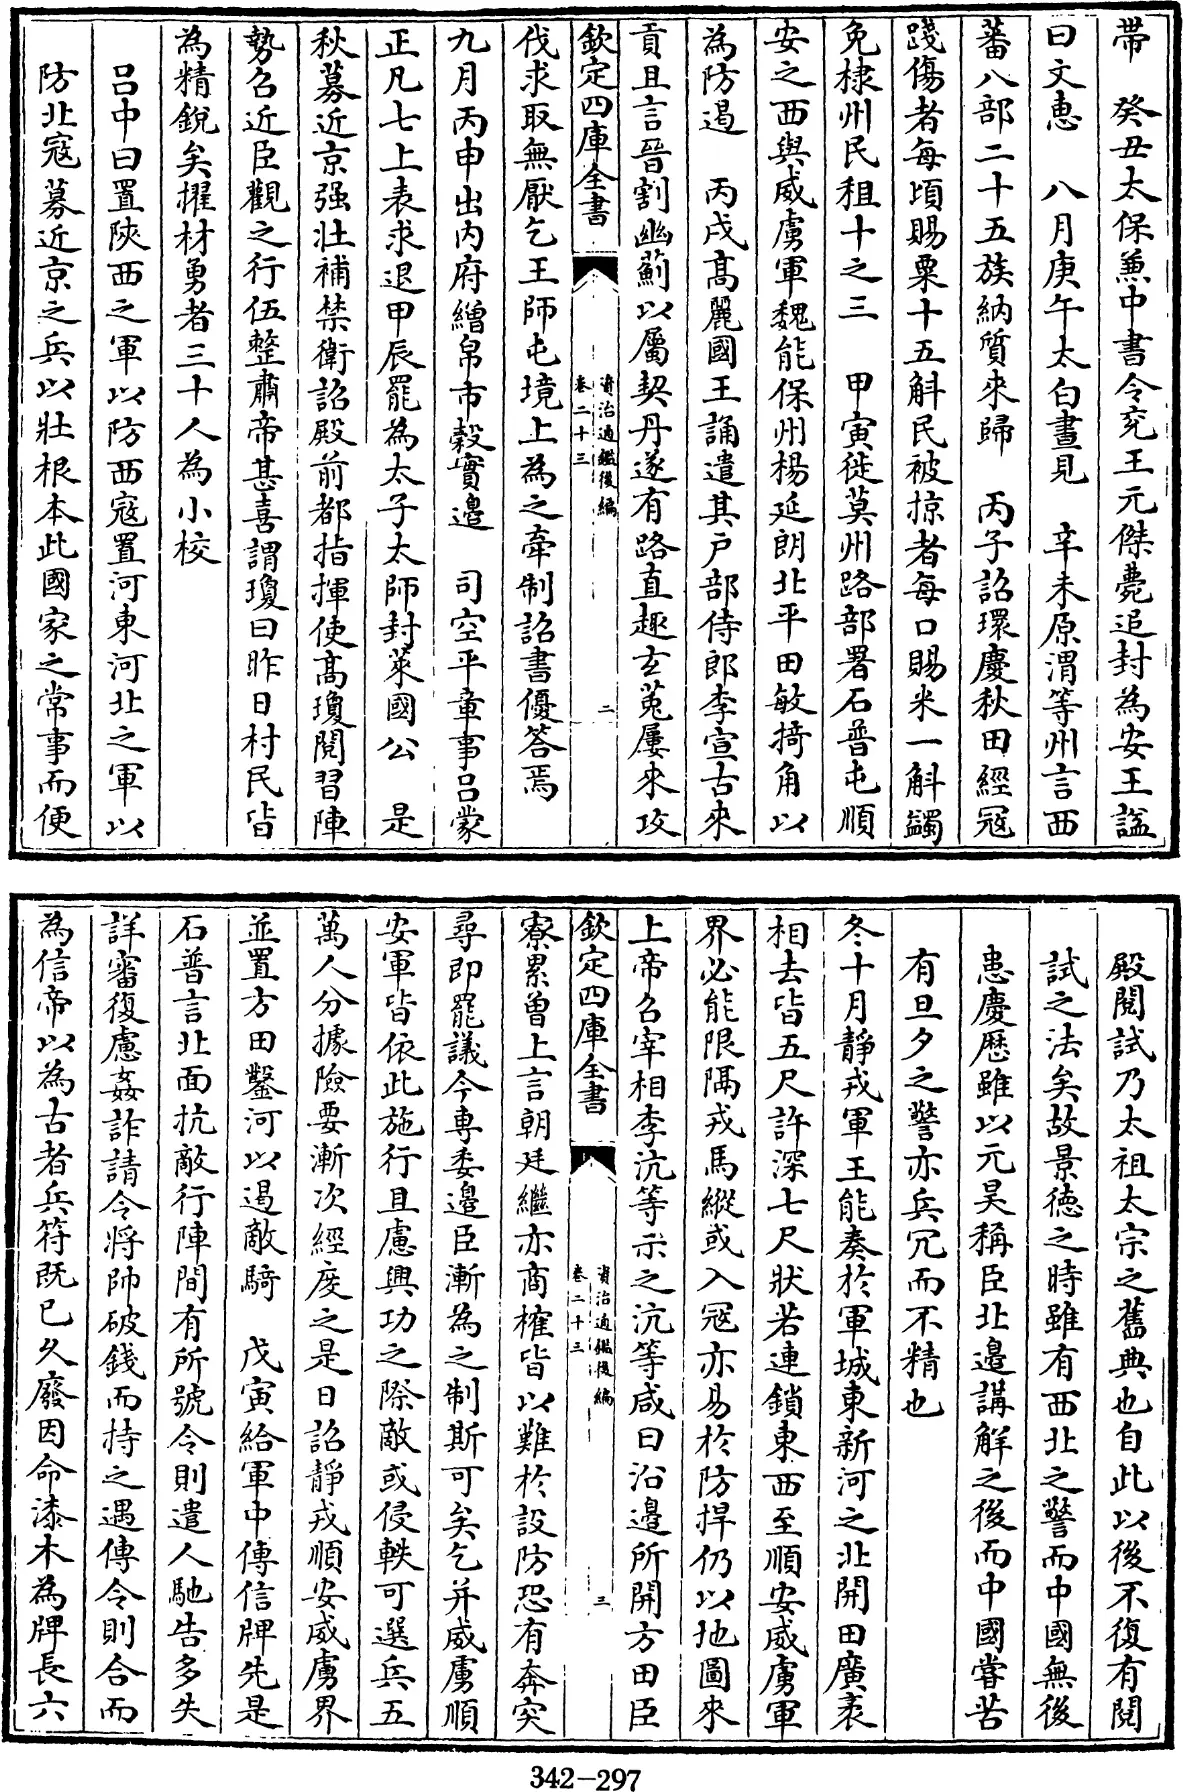 帶　癸丑太保兼中書令兖王元傑薨追封為安王諡
曰文惠　八月庚午太白晝見　辛未原渭等州言西
蕃八部二十五族納質來歸　丙子詔環慶秋田經冦
踐傷者每頃賜粟十五斛民被掠者每口賜米一斛蠲
免棣州民租十之三　甲寅徙莫州路部署石普屯順
安之西與威虜軍魏能保州楊延朗北平田敏掎角以
為防遏　丙戌髙麗國王誦遣其户部侍郎李宣古來
貢且言晉割幽薊以屬契丹遂有路直趣玄菟屢來攻
欽定四庫全書　資治通鑑後編　卷二十三　二
伐求取無厭乞王師屯境上為之牽制詔書優答焉
九月丙申出内府繒帛市穀實邊　司空平章事吕蒙
正凡七上表求退甲辰罷為太子太師封萊國公　是
秋募近京强壯補禁衛詔殿前都指揮使髙瓊閱習陣
勢召近臣觀之行伍整肅帝甚喜謂瓊曰昨日村民皆
為精銳矣擢材勇者三十人為小校
吕中曰置陜西之軍以防西寇置河東河北之軍以
防北寇募近京之兵以壯根本此國家之常事而便
殿閱試乃太祖太宗之舊典也自此以後不復有閱
試之法矣故景德之時雖有西北之警而中國無後
患慶厯雖以元昊稱臣北邊講解之後而中國嘗苦
有旦夕之警亦兵冗而不精也
冬十月靜戎軍王能奏於軍城東新河之北開田廣袤
相去皆五尺許深七尺狀若連鎖東西至順安威虜軍
界必能限隔戎馬縱或入冦亦易於防捍仍以地圖來
上帝召宰相李沆等示之沆等咸曰沿邊所開方田臣
欽定四庫全書　資治通鑑後編　卷二十三　三
寮累曽上言朝廷繼亦商榷皆以難於設防恐有奔突
尋即罷議今專委邊臣漸為之制斯可矣乞并威虜順
安軍皆依此施行且慮興功之際敵或侵軼可選兵五
萬人分據險要漸次經度之是日詔靜戎順安威虜界
並置方田鑿河以遏敵騎　戊寅給軍中傳信牌先是
石普言北面抗敵行陣間有所號令則遣人馳告多失
詳審復慮姦詐請令將帥破錢而持之遇傳令則合而
為信帝以為古者兵符既已久廢因命漆木為牌長六
342—297